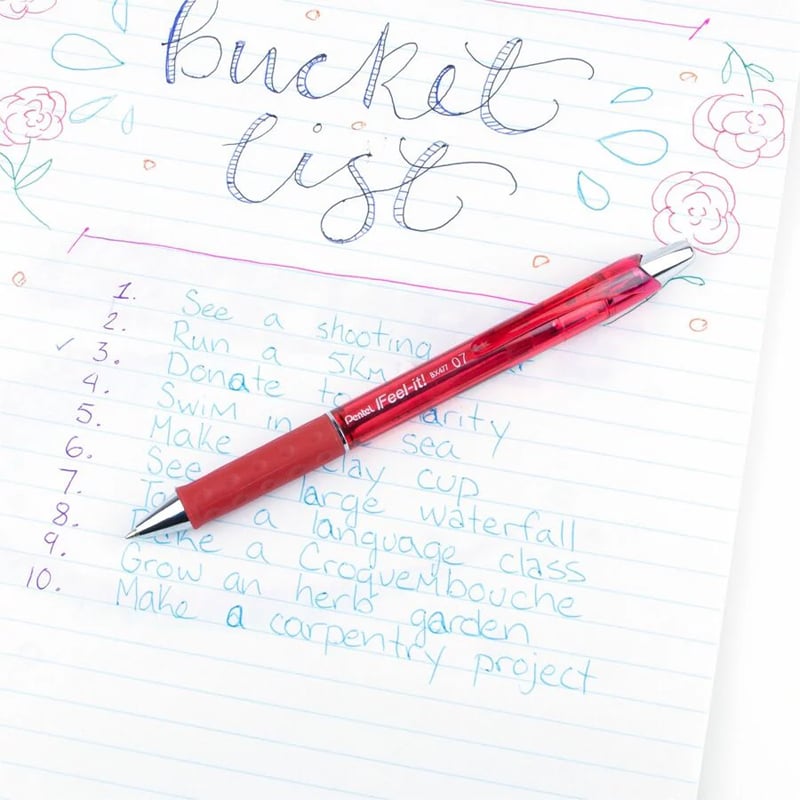 bucket
list
1. See a shooting
2. Run a 5Km
✓ 3. Donate to charity
4. Swim in sea
5. Make clay cup
6. See large waterfall
7. a language class
8. a Croquembouche
9. Grow an herb garden
10. Make a carpentry project
Pentel IFeel-it! BX477 07